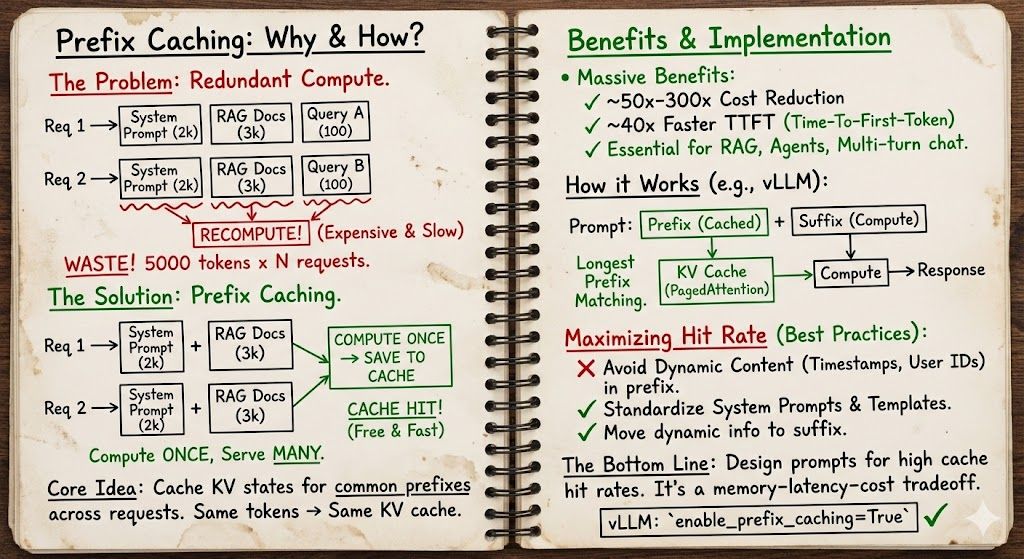 Prefix Caching: Why & How?
The Problem: Redundant Compute.
Req 1 → System Prompt (2k) RAG Docs (3k) Query A (100)
Req 2 → System Prompt (2k) RAG Docs (3k) Query B (100)
RECOMPUTE! (Expensive & Slow)
WASTE! 5000 tokens x N requests.
The Solution: Prefix Caching.
Req 1 → System Prompt (2k) + RAG Docs (3k)
COMPUTE ONCE
→ SAVE TO
CACHE
Req 2 → System Prompt (2k) + RAG Docs (3k)
CACHE HIT!
(Free & Fast)
Compute ONCE, Serve MANY.
Core Idea: Cache KV states for common prefixes
across requests. Same tokens → Same KV cache.
Benefits & Implementation
• Massive Benefits:
✓ ~50x-300x Cost Reduction
✓ ~40x Faster TTFT (Time-To-First-Token)
✓ Essential for RAG, Agents, Multi-turn chat.
How it Works (e.g., vLLM):
Prompt: Prefix (Cached) + Suffix (Compute)
Longest
Prefix
Matching.
KV Cache
(PagedAttention)
Compute → Response
Maximizing Hit Rate (Best Practices):
✗ Avoid Dynamic Content (Timestamps, User IDs)
in prefix.
✓ Standardize System Prompts & Templates.
✓ Move dynamic info to suffix.
The Bottom Line: Design prompts for high cache
hit rates. It's a memory-latency-cost tradeoff.
vLLM: `enable_prefix_caching=True` ✓